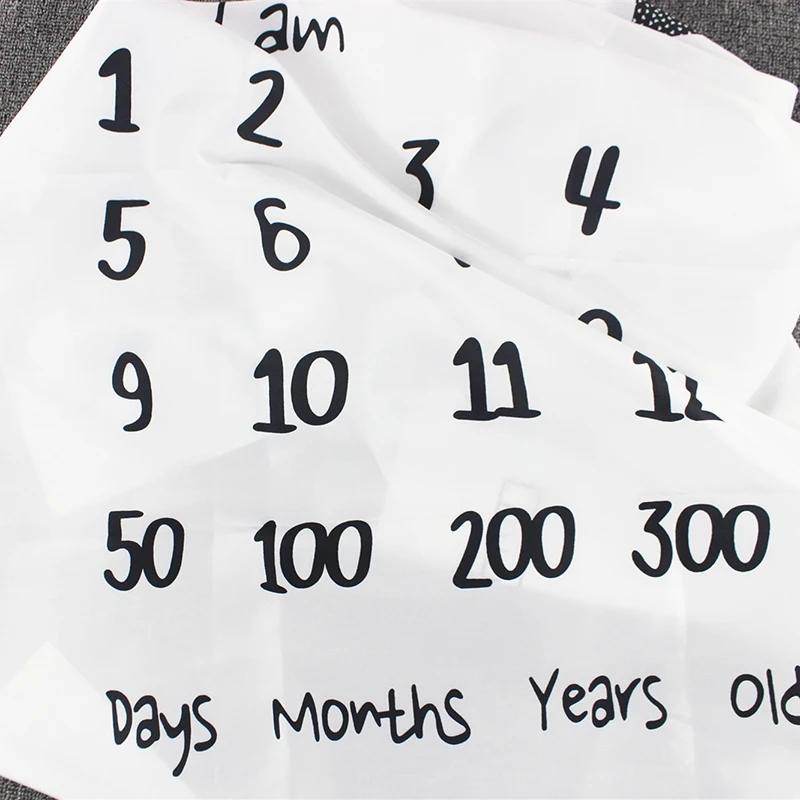 I am
1 2 3 4
5 6
9 10 11 12
50 100 200 300
Days Months Years Old